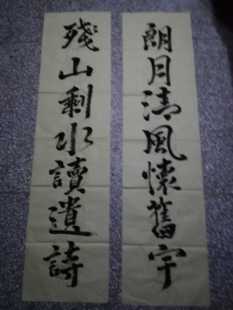 朗月清風懷舊宇
殘山剩水讀遺詩